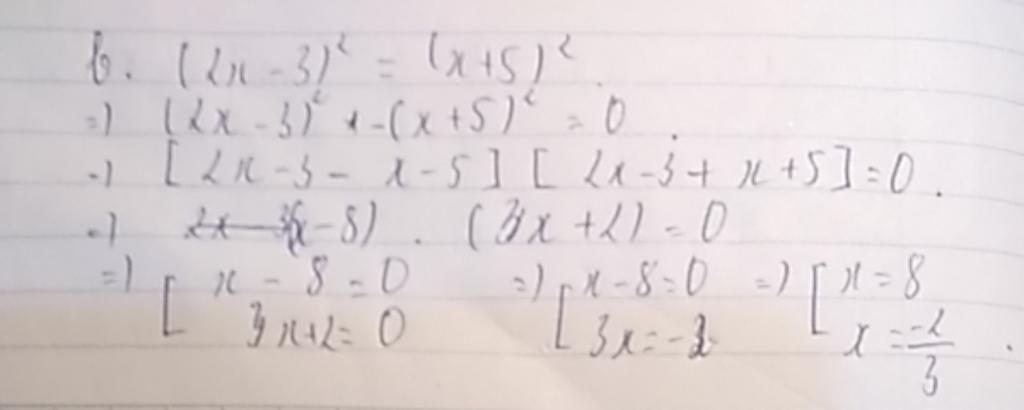 b. (2x - 3)² = (x+5)²
=> (2x - 3)² - (x+5)² = 0.
=> [2x - 3 - x - 5] [2x - 3 + x + 5] = 0.
=> (x - 8) . (3x + 2) = 0
=> [ x - 8 = 0 => [ x - 8 = 0 => [ x = 8
3x + 2 = 0 3x = -2 x = -2/3.